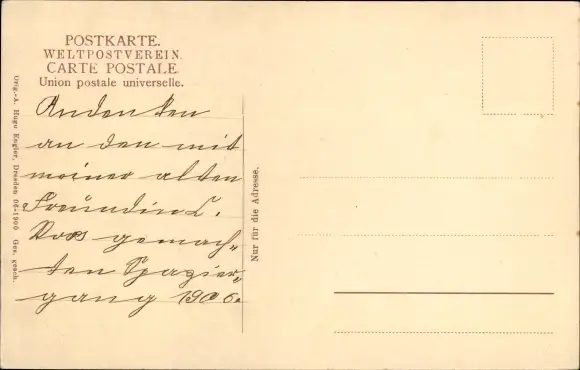 POSTKARTE.
WELTPOSTVEREIN.
CARTE POSTALE.
Union postale universelle.
Andenken
an den mit
meiner alten
Freundin L.
gemach-
ten Spazier-
gang 1906.
Orig.-A. Hugo Engler, Dresden 06-1900 Ges. gesch.
Nur für die Adresse.